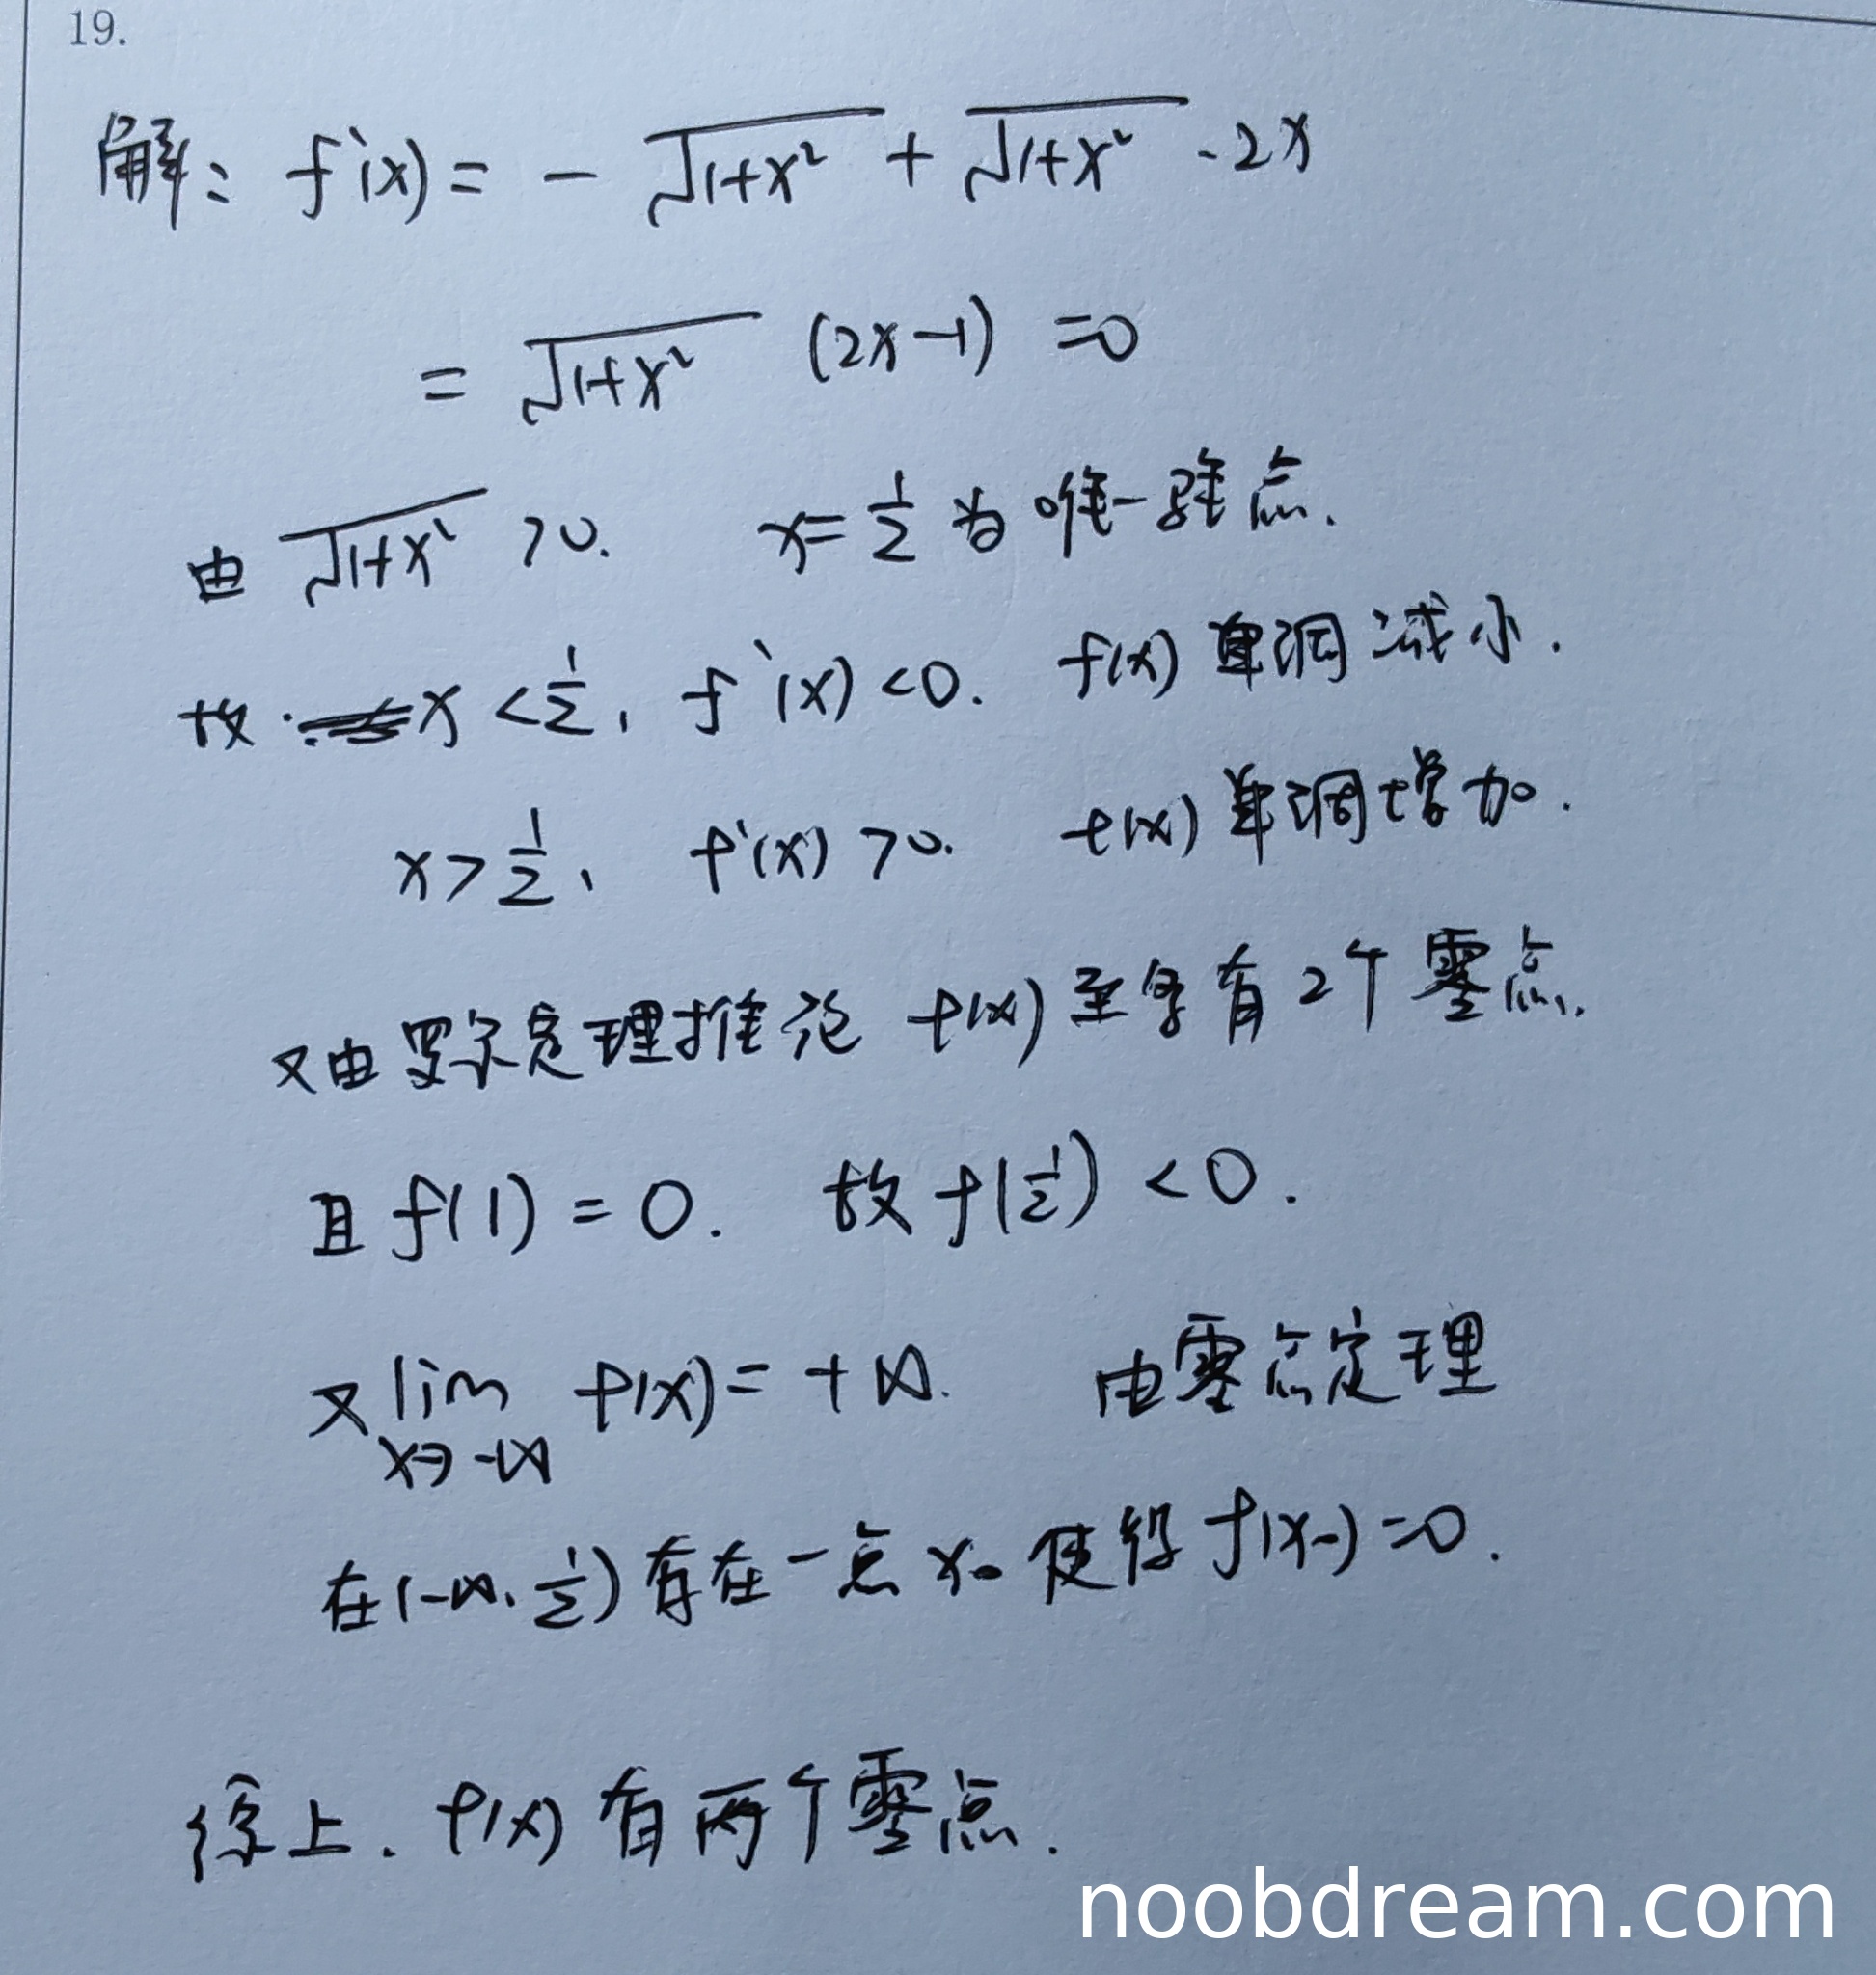 19.
解: f'(x) = - √(1+x²) + √(1+x²) · 2x
= √(1+x²) (2x-1) =0
由 √(1+x²) >0. x= 1/2 为唯一驻点.
故 x < 1/2, f'(x) <0. f(x) 单调减小.
x > 1/2, f'(x) >0. f(x) 单调增加.
又由罗尔定理推论 f(x) 至多有 2个零点.
且 f(1) = 0. 故 f(1/2) < 0.
又 lim f(x) = +∞. 由零点定理
x→-∞
在(-∞, 1/2) 存在一点 x₀ 使得 f(x₀) =0.
综上. f(x) 有两个零点.
noobdream.com